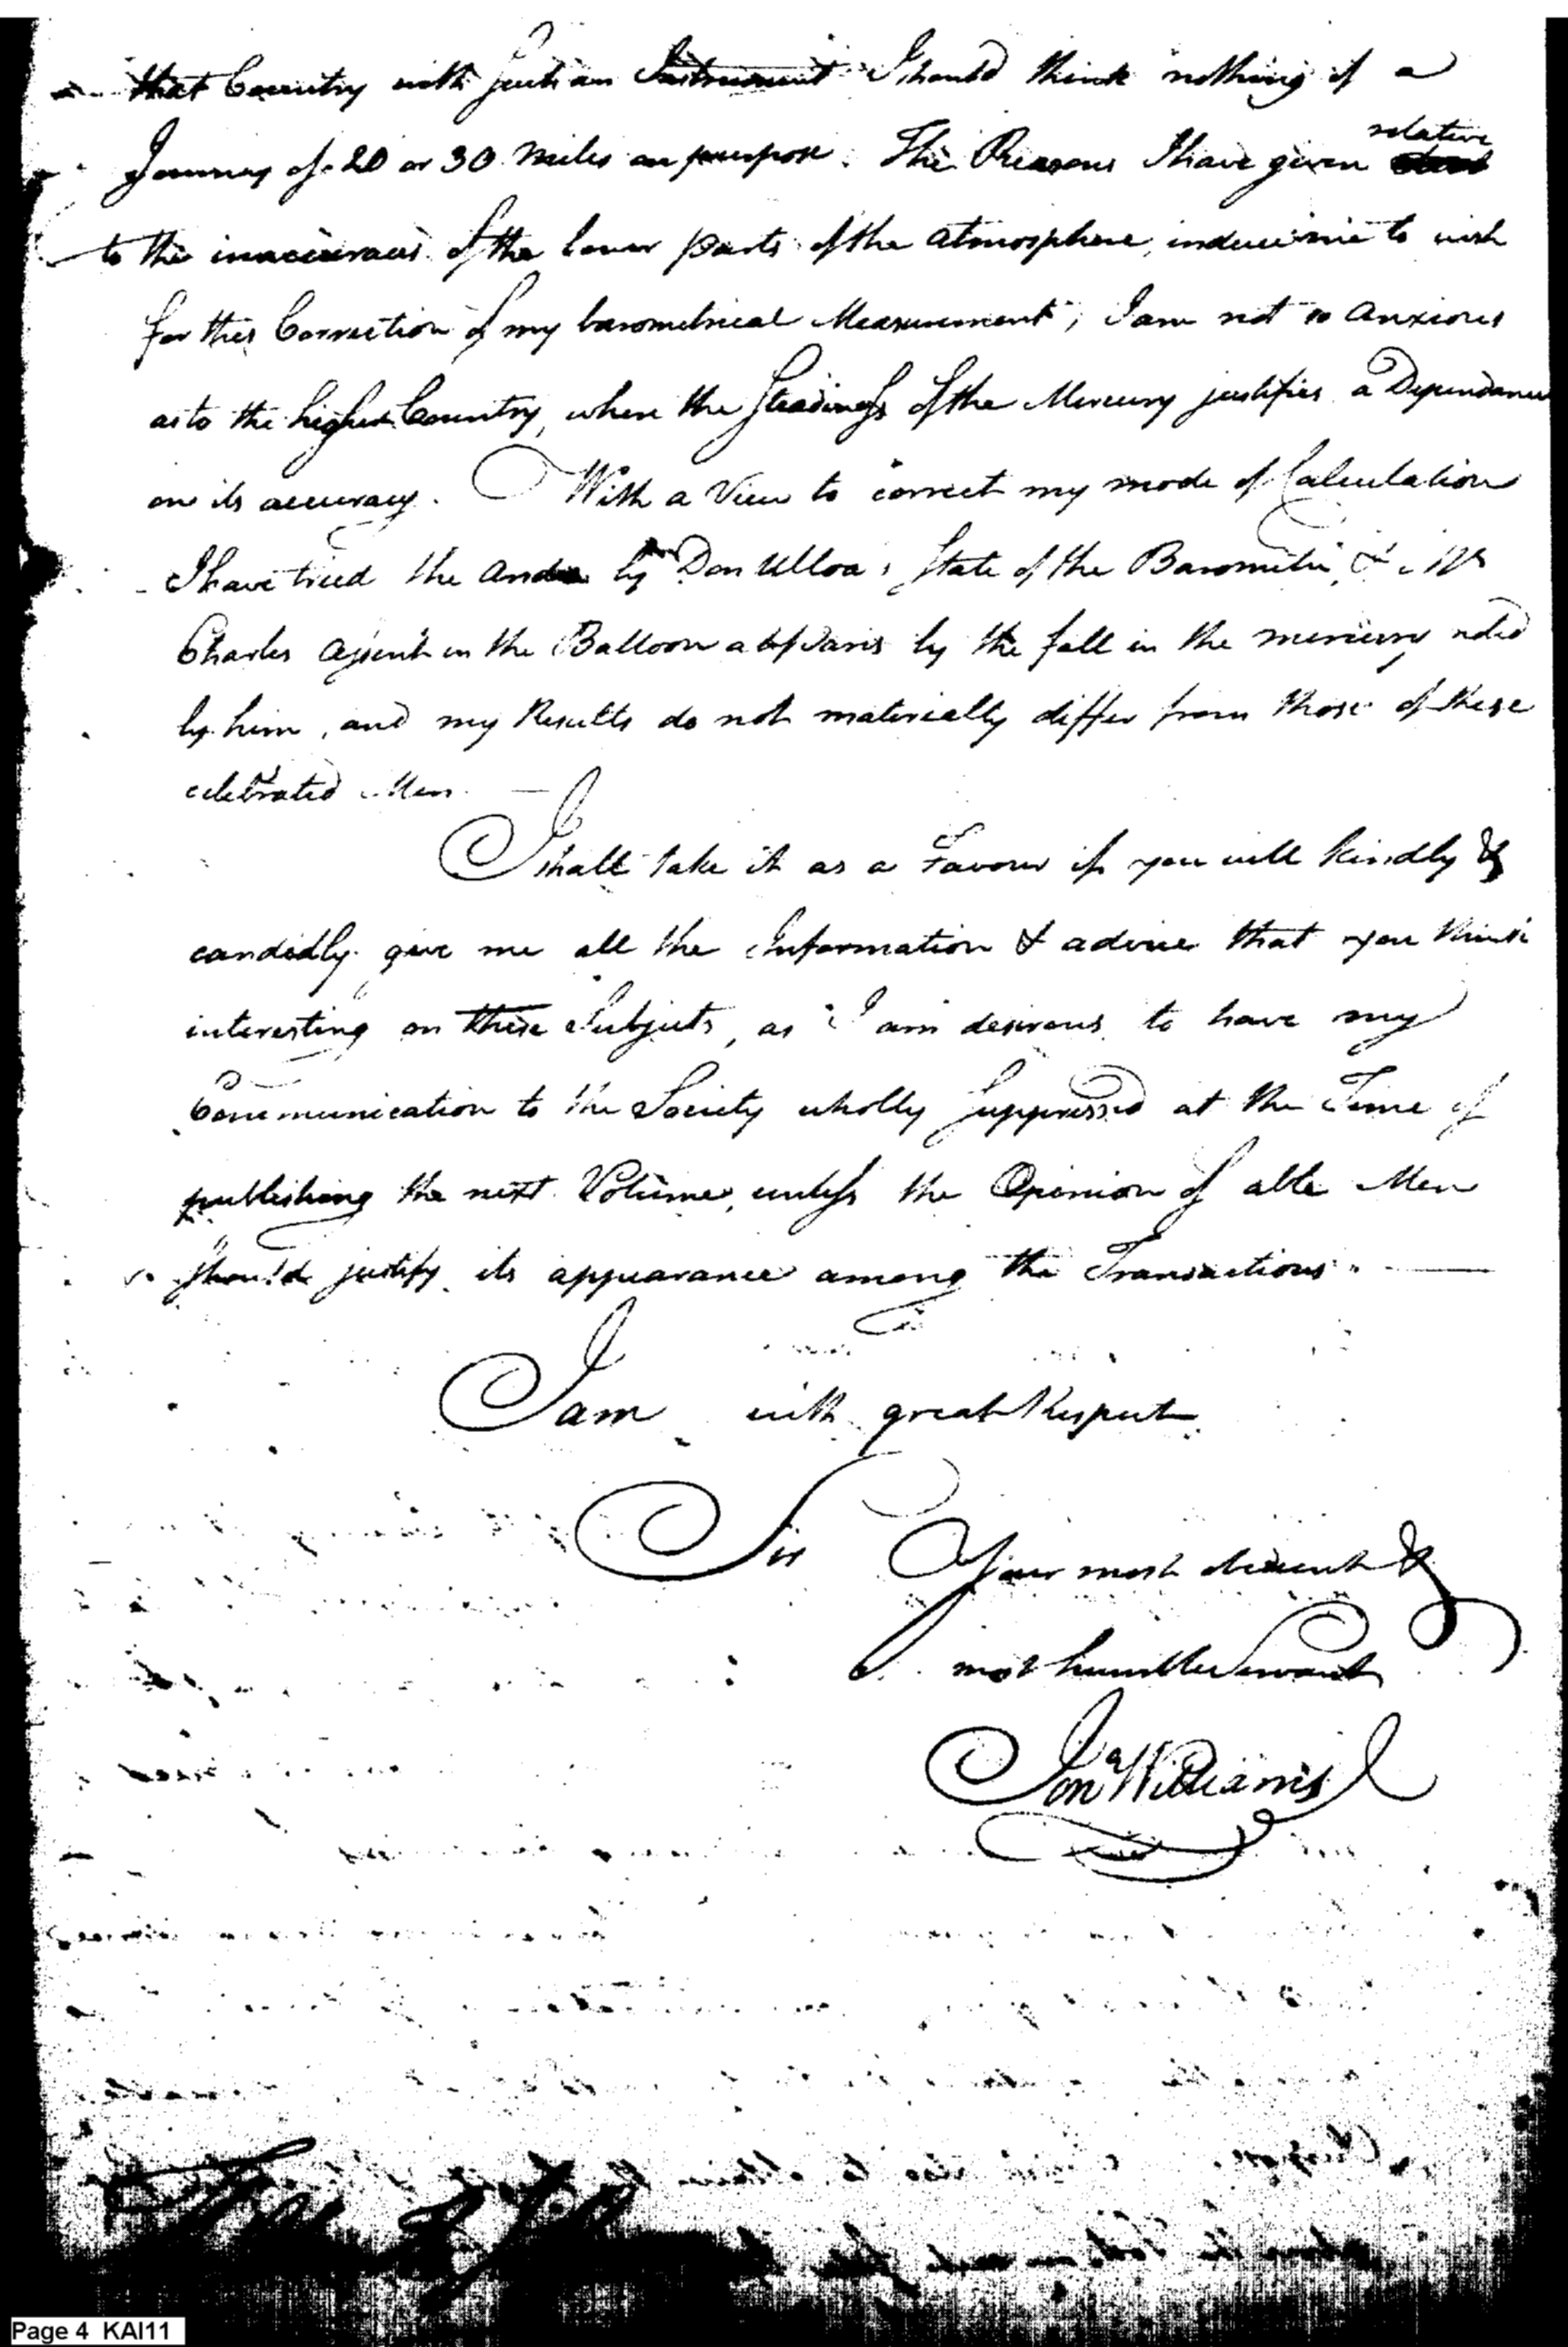 that Country with such an Instrument I should think nothing of a
Journey of 20 or 30 Miles on purpose. The Reasons I have given relative
to the inaccuracies of the lower parts of the Atmosphere, induce me to wish
for this Correction of my barometrical Measurement; I am not so anxious
as to the higher Country, where the Steadiness of the Mercury justifies a Dependance
on its accuracy. With a View to correct my mode of Calculation
I have tried the Andes by Don Ulloa's State of the Barometer, & Mr
Charles Ascent in the Balloon at Paris by the fall in the mercury noted
by him, and my Results do not materially differ from those of these
celebrated Men. —
I shall take it as a Favour if you will kindly &
candidly give me all the Information & advice that you think
interesting on these Subjects, as I am desirous to have my
Communication to the Society wholly suppressed at the Time of
publishing the next Volume, unless the Opinion of able Men
should justify its appearance among the Transactions. —
I am with great Respect
Sir Your most obedient &
most humble Servant
Jona Williams
Page 4 KAI11